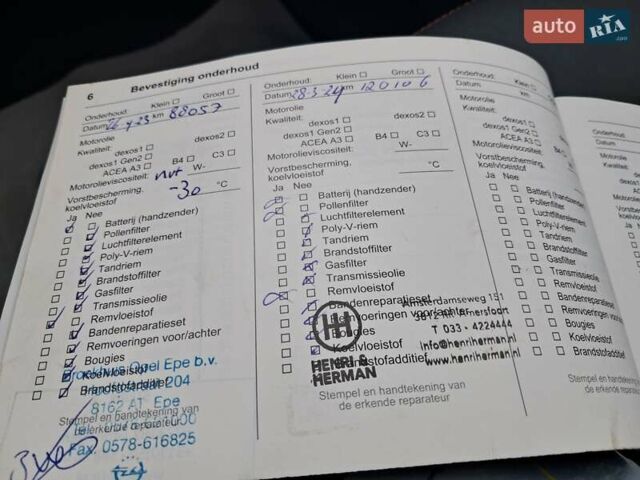 auto RIA .com
6 Bevestiging onderhoud
Onderhoud: Klein Groot
Datum 26 4 23 km 88057
Motorolie
Kwaliteit: dexos1 dexos2
dexos1 Gen2
ACEA A3 B4 C3
Motorolieviscositeit: W-
Vorstbescherming, nvt
koelvloeistof -30 °C
Ja Nee
Batterij (handzender)
Pollenfilter
Luchtfilterelement
Poly-V-riem
Tandriem
Brandstoffilter
Gasfilter
Transmissieolie
Remvloeistof
Bandenreparatieset
Remvoeringen voor/achter
Bougies
Koelvloeistof
Brandstofadditief
Brockhuis Opel Epe b.v.
204
8162 AT Epe
Stempel en handtekening van
de erkende reparateur
Fax. 0578-616825
Onderhoud: Klein Groot
Datum 28-3-24 km 120106
Motorolie
Kwaliteit: dexos1 dexos2
dexos1 Gen2
ACEA A3 B4 C3
Motorolieviscositeit: W-
Vorstbescherming,
koelvloeistof °C
Ja Nee
Batterij (handzender)
Pollenfilter
Luchtfilterelement
Poly-V-riem
Tandriem
Brandstoffilter
Gasfilter
Transmissieolie
Remvloeistof
Bandenreparatieset
Remvoeringen voor/achter
Bougies
Koelvloeistof
Brandstofadditief
HENRI &
HERMAN
Amsterdamseweg 151
3812 RR Amersfoort
T 033 - 4224444
info@henriherman.nl
www.henriherman.nl
Stempel en handtekening van
de erkende reparateur
Onderhoud: Klein
Datum km
Motorolie
Kwaliteit: dexos1
dexos1 Gen2
ACEA A3
Motorolieviscositeit:
Vorstbescherming,
koelvloeistof
Ja Nee
Batterij (handzender)
Pollenfilter
Luchtfilterelement
Poly-V-riem
Tandriem
Brandstoffilter
Gasfilter
Transmissieolie
Remvloeistof
Bandenreparatieset
Remvoeringen voor/achter
Bougies
Koelvloeistof
Brandstofadditief
Stempel en handtekening
de erkende reparateur